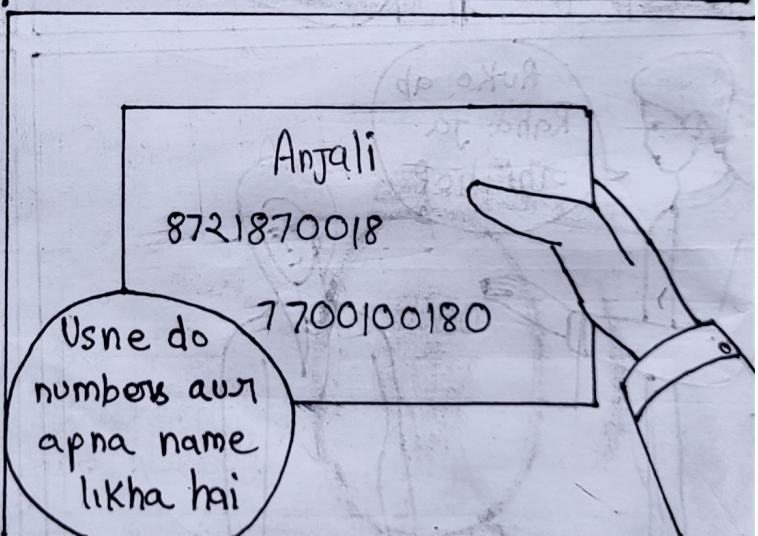 Anjali
8721870018
7700100180
Usne do
numbers aur
apna name
likha hai